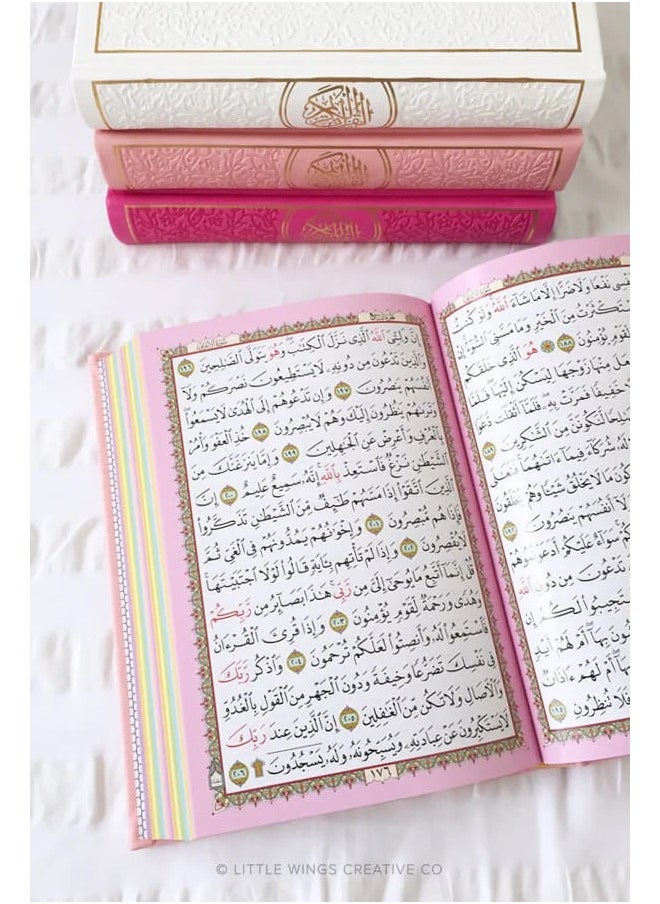 نَفْعًا وَلَا ضَرًّا إِلَّا مَا شَآءَ ٱللَّهُ وَلَوْ كُنتُ
مِنَ ٱلْخَيْرِ وَمَا مَسَّنِىَ ٱلسُّوٓءُ إِنْ
لِّقَوْمٍ يُؤْمِنُونَ ١٨٨ هُوَ ٱلَّذِى خَلَقَكُم
مِنْهَا زَوْجَهَا لِيَسْكُنَ إِلَيْهَا
خَفِيفًا فَمَرَّتْ بِهِۦ فَلَمَّآ أَثْقَلَت دَّعَوَا
لَّنَكُونَنَّ مِنَ ٱلشَّٰكِرِينَ ١٨٩
شُرَكَآءَ فِيمَآ ءَاتَىٰهُمَا فَتَعَٰلَى
مَا لَا يَخْلُقُ شَيْـًٔا وَهُمْ يُخْلَقُونَ
أَنفُسَهُمْ يَنصُرُونَ
سَوَآءٌ عَلَيْكُمْ أَدَعَوْتُمُوهُمْ
تَدْعُونَ مِن دُونِ ٱللَّهِ
لَكُمْ إِن
بِهَآ أَمْ لَهُمْ أَيْدٍ
بِهَآ أَمْ لَهُمْ ءَاذَانٌ
فَلَا تُنظِرُونِ ١٩٥
إِنَّ وَلِـِّۧىَ ٱللَّهُ ٱلَّذِى نَزَّلَ ٱلْكِتَٰبَ وَهُوَ يَتَوَلَّى ٱلصَّٰلِحِينَ ١٩٦
وَٱلَّذِينَ تَدْعُونَ مِن دُونِهِۦ لَا يَسْتَطِيعُونَ نَصْرَكُمْ وَلَآ
أَنفُسَهُمْ يَنصُرُونَ ١٩٧ وَإِن تَدْعُوهُمْ إِلَى ٱلْهُدَىٰ لَا يَسْمَعُوا۟
وَتَرَىٰهُمْ يَنظُرُونَ إِلَيْكَ وَهُمْ لَا يُبْصِرُونَ ١٩٨ خُذِ ٱلْعَفْوَ وَأْمُرْ
بِٱلْعُرْفِ وَأَعْرِضْ عَنِ ٱلْجَٰهِلِينَ ١٩٩ وَإِمَّا يَنزَغَنَّكَ مِنَ
ٱلشَّيْطَٰنِ نَزْغٌ فَٱسْتَعِذْ بِٱللَّهِ إِنَّهُۥ سَمِيعٌ عَلِيمٌ ٢٠٠ إِنَّ
ٱلَّذِينَ ٱتَّقَوْا۟ إِذَا مَسَّهُمْ طَٰٓئِفٌ مِّنَ ٱلشَّيْطَٰنِ تَذَكَّرُوا۟
فَإِذَا هُم مُّبْصِرُونَ ٢٠١ وَإِخْوَٰنُهُمْ يَمُدُّونَهُمْ فِى ٱلْغَىِّ ثُمَّ
لَا يُقْصِرُونَ ٢٠٢ وَإِذَا لَمْ تَأْتِهِم بِـَٔايَةٍ قَالُوا۟ لَوْلَا ٱجْتَبَيْتَهَا
قُلْ إِنَّمَآ أَتَّبِعُ مَا يُوحَىٰٓ إِلَىَّ مِن رَّبِّى هَٰذَا بَصَآئِرُ مِن رَّبِّكُمْ
وَهُدًى وَرَحْمَةٌ لِّقَوْمٍ يُؤْمِنُونَ ٢٠٣ وَإِذَا قُرِئَ ٱلْقُرْءَانُ
فَٱسْتَمِعُوا۟ لَهُۥ وَأَنصِتُوا۟ لَعَلَّكُمْ تُرْحَمُونَ ٢٠٤ وَٱذْكُر رَّبَّكَ
فِى نَفْسِكَ تَضَرُّعًا وَخِيفَةً وَدُونَ ٱلْجَهْرِ مِنَ ٱلْقَوْلِ بِٱلْغُدُوِّ
وَٱلْـَٔاصَالِ وَلَا تَكُن مِّنَ ٱلْغَٰفِلِينَ ٢٠٥ إِنَّ ٱلَّذِينَ عِندَ رَبِّكَ
لَا يَسْتَكْبِرُونَ عَنْ عِبَادَتِهِۦ وَيُسَبِّحُونَهُۥ وَلَهُۥ يَسْجُدُونَ ۩ ٢٠٦
١٧٦
© LITTLE WINGS CREATIVE CO